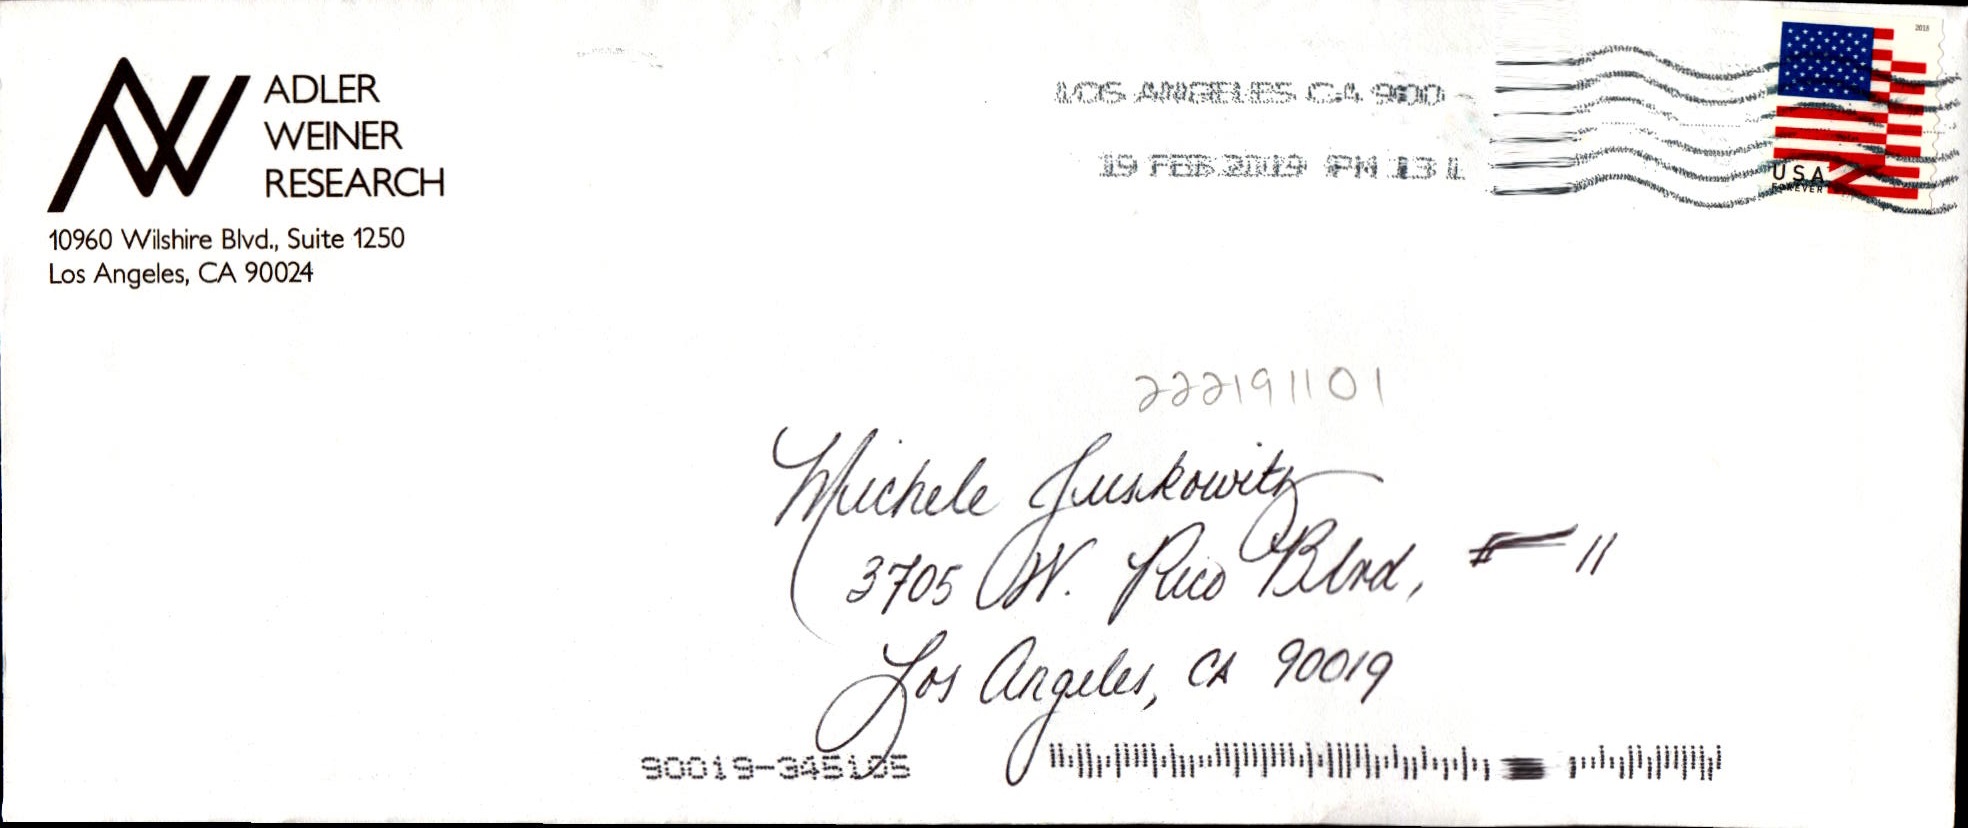 ADLER
WEINER
RESEARCH
10960 Wilshire Blvd., Suite 1250
Los Angeles, CA 90024
LOS ANGELES CA 900
19 FEB 2019 PM 13 L
2018
USA
FOREVER
222191101
Michele Juskowitz
3705 W. Pico Blvd, # 11
Los Angeles, CA 90019
90019-345105